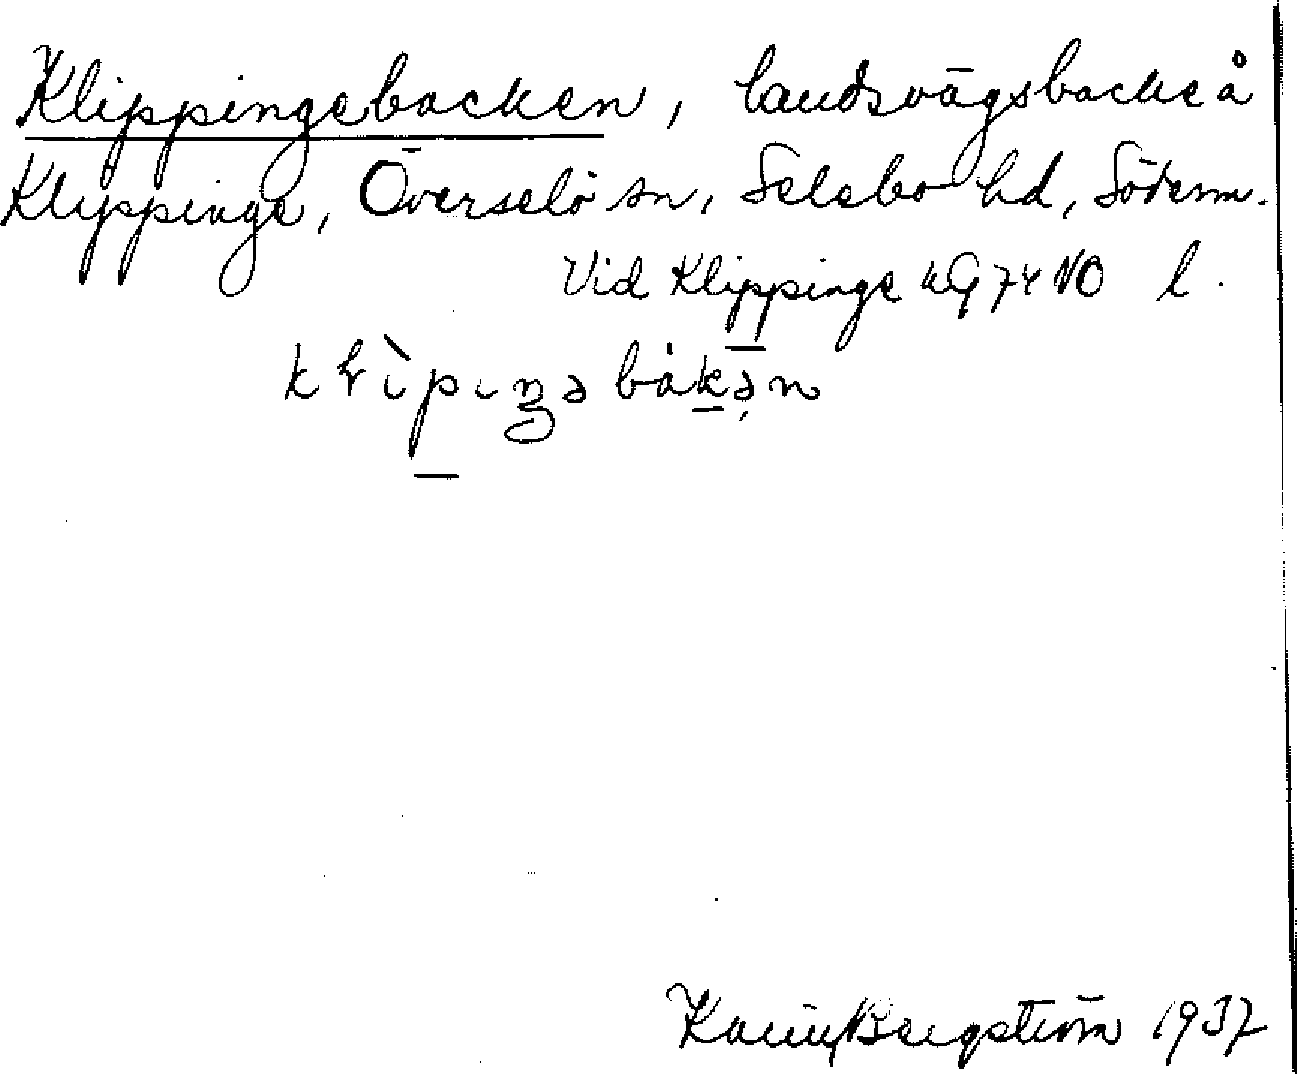 Klippingebacken, landsvägsbacke å
Klippinge, Överselö sn, Selebo hd, Söderm.
Vid Klippinge 9G74 NO l.
Karin Bergström 1937